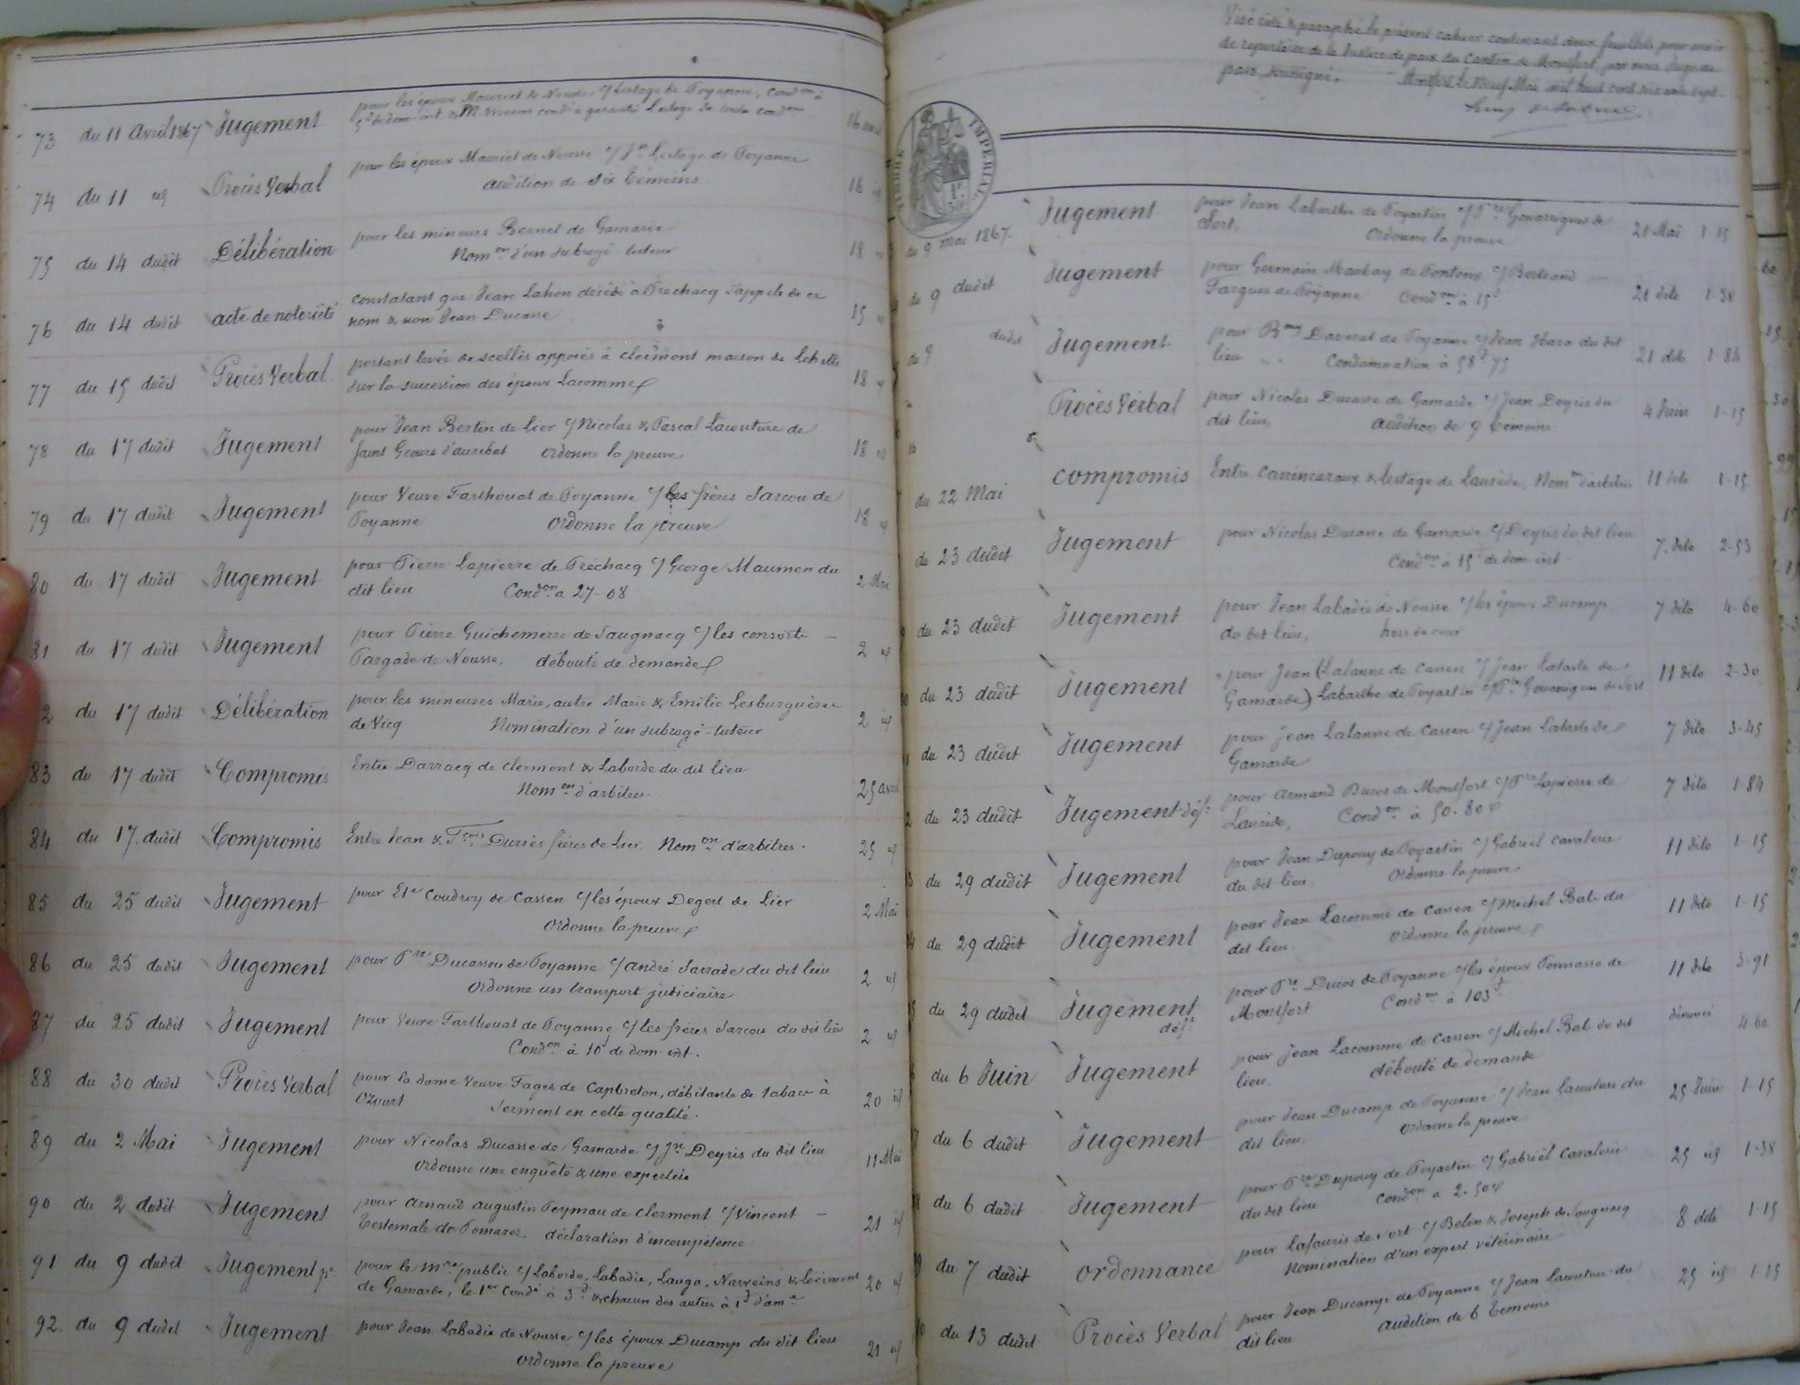 73 du 11 Avril 1867 Jugement pour les époux Mauriet de Nousse c/ Lestage de Poyanne, Cond.on à
cond.é à garantir Lestage de toute cond.on 16
74 du 11 id Procès Verbal pour les époux Mauriet de Nousse c/ J.n Lestage de Poyanne
audition de six témoins 16 id
75 du 14 dudit Délibération pour les mineurs Bernet de Gamarde
Nom.on d'un subrogé-tuteur 18
76 du 14 dudit acte de notoriété constatant que Jean Lahon décédé à Préchacq s'appele de ce
nom & non Jean Ducasse 15
77 du 15 dudit Procès Verbal portant levée de scellés apposés à Clermont maison de
sur la succession des époux Lacomme 18
78 du 17 dudit Jugement pour Jean Bertin de Lier c/ Nicolas & Pascal Lacouture de
Saint Geours d'auribat ordonne la preuve 18
79 du 17 dudit Jugement pour Veuve Farthouat de Poyanne c/ les frères Sarcou de
Poyanne ordonne la preuve 18
80 du 17 dudit Jugement pour Pierre Lapierre de Préchacq c/ George Maumen du
dit lieu Cond.on à 27-08 2 Mai
81 du 17 dudit Jugement pour Pierre Guichemerre de Saugnacq c/ les consorts
Pargade de Nousse. débouté de demande 2 id
2 du 17 dudit Délibération pour les mineures Marie, autre Marie & Emilie Lesburguères
de Vicq Nomination d'un subrogé-tuteur 2 id
83 du 17 dudit Compromis Entre Darracq de clermont & Laborde du dit lieu
Nom.on d'arbitres. 25 avril
84 du 17 dudit Compromis Entre Jean & F.çois Duriès frères de Lier. Nom.on d'arbitres. 25 id
85 du 25 dudit Jugement pour Et.e Coudroy de Cassen c/ les époux Degert de Lier
ordonne la preuve 2 Mai
86 du 25 dudit Jugement pour P.re Ducassou de Poyanne c/ andré Sarrade du dit lieu
ordonne un transport judiciaire 2 id
87 du 25 dudit Jugement pour Veuve Farthouat de Poyanne c/ les frères Sarcou du dit lieu
Cond.on à 10 f de dom-int. 2 id
88 du 30 dudit Procès Verbal pour la dame Veuve Fages de Capbreton, débitante de tabac à
Ozourt Serment en cette qualité. 20 id
89 du 2 Mai Jugement pour Nicolas Ducasse de Gamarde c/ J.n Deyris du dit lieu
ordonne une enquête & une expertise 11 Mai
90 du 2 dudit Jugement pour Arnaud augustin Peymau de clermont c/ Vincent
Testemale de Pomarez. déclaration d'incompétence 21 id
91 du 9 dudit Jugement p.ce pour le M.re public c/ Laborde, Labadie, Lauga, Narreins &
de Gamarde, le 1er Cond.é à 3 f & chacun des autres à 1 f d'am.de 20 id
92. du 9 dudit Jugement pour Jean Labadie de Nousse c/ les époux Ducamp du dit lieu
ordonne la preuve 21 id
Visé côté & paraphé le présent cahier contenant deux feuillets pour servir
de repertoire de la Justice de paix du Canton de Montfort, par nous Juge de
paix soussigné. Montfort le Neuf Mai mil huit cent soixante sept.
TIMBRE IMPÉRIAL
du 9 mai 1867. Jugement pour Jean Labarthe de Poyartin c/ P.re Gouarrigues de
Sort. Ordonne la preuve 21 Mai 1-15
du 9 dudit Jugement pour Germain Maubay de Pontonx c/ Bertrand
Fargues de Poyanne Cond.on à 15 f 21 dito 1-38
du 9 dudit Jugement pour B.my Daverat de Poyanne c/ Jean Hara du dit
lieu Condamnation à 58 f 75 21 dito 1-84
Procès Verbal pour Nicolas Ducasse de Gamarde c/ Jean Deyris du
dit lieu audition de 9 témoins 4 Juin 1-15
du 22 Mai Compromis Entre Cavincaraux & Lestage de Laurède, Nom.on d'arbitres. 11 dito 1-15
du 23 dudit Jugement pour Nicolas Ducasse de Gamarde c/ Deyris du dit lieu
Cond.on à 15 f de dom-int. 7 dito 2-53
du 23 dudit Jugement pour Jean Labadie de Nousse c/ les époux Ducamp
du dit lieu, hors de cour 7 dito 4-60
du 23 dudit Jugement pour Jean (Lalanne de Cassen c/ Jean Lataste de
Gamarde) Labarthe de Poyartin c/ P.re Gouarrigues de Sort 11 dito 2-30
du 23 dudit Jugement pour Jean Lalanne de Cassen c/ Jean Lataste de
Gamarde 7 dito 3-45
du 23 dudit Jugement déf.t pour Armand Ducos de Montfort c/ P.re Lapierre de
Laurède, Cond.on à 50-80 7 dito 1-84
du 29 dudit Jugement pour Jean Dupouy de Poyartin c/ Gabriel Cavalerie
du dit lieu. ordonne la preuve. 11 dito 1-15
du 29 dudit Jugement pour Jean Lacomme de Cassen c/ Michel Bats du
dit lieu. ordonne la preuve 11 dito 1-15
du 29 dudit Jugement déf.t pour P.re Ducos de Poyanne c/ les époux Tonnasse de
Montfort Cond.on à 103 f 11 dito 3-91
du 6 Juin Jugement pour Jean Lacomme de Cassen c/ Michel Bats du dit
lieu. débouté de demande 4-60
du 6 dudit Jugement pour Jean Ducamp de Poyanne c/ Jean Lacouture du
dit lieu. ordonne la preuve 25 Juin 1-15
du 6 dudit Jugement pour P.re Dupouy de Poyartin c/ Gabriël Cavalerie
du dit lieu Cond.on à 2-50 25 id 1-38
du 7 dudit Ordonnance pour Lafauris de Sort c/ Belin & Joseph de Saugnacq
Nomination d'un expert vétérinaire 8 dito 1-15
du 13 dudit Procès Verbal pour Jean Ducamp de Poyanne c/ Jean Lacouture du
dit lieu audition de 6 témoins 25 id 1-15